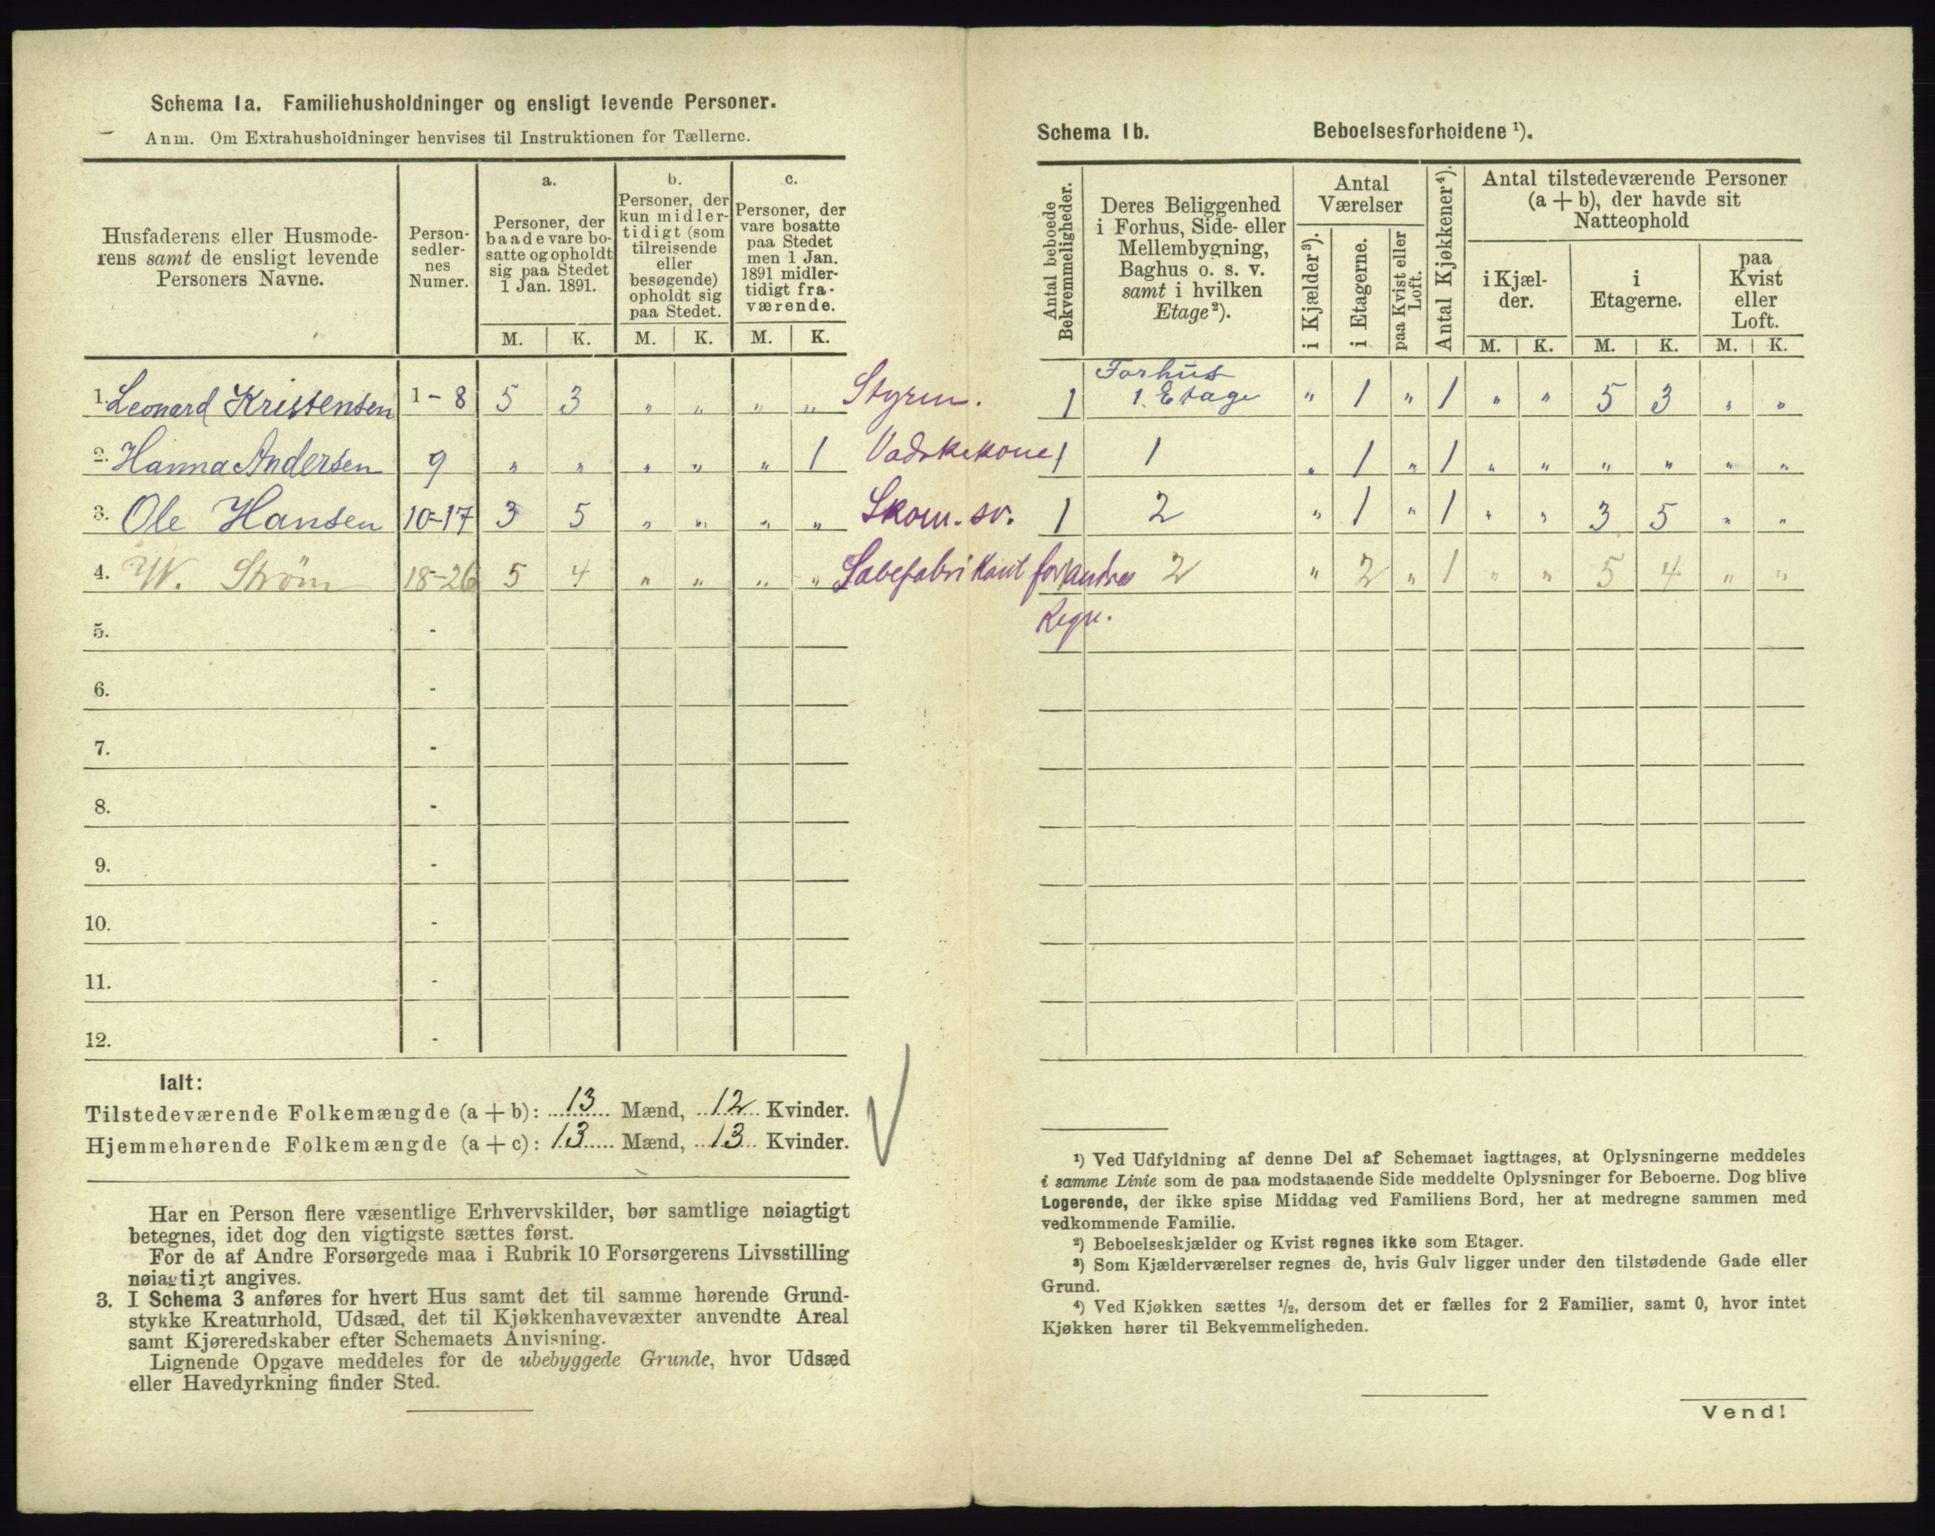 Schema 1a. Familiehusholdninger og ensligt levende Personer.
Anm. Om Extrahusholdninger henvises til Instruktionen for Tællerne.
Husfaderens eller Husmode-
rens samt de ensligt levende
Personers Navne.
Person-
sedler-
nes
Numer.
a.
Personer, der
baade vare bo-
satte og opholdt
sig paa Stedet
1 Jan. 1891.
b.
Personer, der
kun midler-
tidigt (som
tilreisende
eller
besøgende)
opholdt sig
paa Stedet.
c.
Personer, der
vare bosatte
paa Stedet
men 1 Jan.
1891 midler-
tidigt fra-
værende.
M. K. M. K. M. K.
1. Leonard Kristensen 1-8 5 3 " " " " Styrm.
2. Hanna Andersen 9 " " " " " 1 Vadskekone
3. Ole Hansen 10-17 3 5 " " " " Skom. sv.
4. W. Strøm 18-26 5 4 " " " " Sæbefabrikant for andres
Regn.
5. -
6. -
7. -
8. -
9. -
10. -
11. -
12. -
Ialt:
Tilstedeværende Folkemængde (a + b): 13 Mænd, 12 Kvinder.
Hjemmehørende Folkemængde (a + c): 13 Mænd, 13 Kvinder.
Har en Person flere væsentlige Erhvervskilder, bør samtlige nøiagtigt
betegnes, idet dog den vigtigste sættes først.
For de af Andre Forsørgede maa i Rubrik 10 Forsørgerens Livsstilling
nøiagtigt angives.
3. I Schema 3 anføres for hvert Hus samt det til samme hørende Grund-
stykke Kreaturhold, Udsæd, det til Kjøkkenhavevæxter anvendte Areal
samt Kjøreredskaber efter Schemaets Anvisning.
Lignende Opgave meddeles for de ubebyggede Grunde, hvor Udsæd
eller Havedyrkning finder Sted.
Schema 1b. Beboelsesforholdene ¹).
Antal beboede
Bekvemmeligheder.
Deres Beliggenhed
i Forhus, Side- eller
Mellembygning,
Baghus o. s. v.
samt i hvilken
Etage²).
Antal
Værelser
i Kjælder³).
i Etagerne.
paa Kvist eller
Loft.
Antal Kjøkkener⁴).
Antal tilstedeværende Personer
(a + b), der havde sit
Natteophold
i Kjæl-
der.
i
Etagerne.
paa
Kvist
eller
Loft.
M. K. M. K. M. K.
Forhus
1 1. Etage " 1 " 1 " " 5 3 " "
1 1 " 1 " 1 " " " " " "
1 2 " 1 " 1 " " 3 5 " "
1 2 " 2 " 1 " " 5 4 " "
¹) Ved Udfyldning af denne Del af Schemaet iagttages, at Oplysningerne meddeles
i samme Linie som de paa modstaaende Side meddelte Oplysninger for Beboerne. Dog blive
Logerende, der ikke spise Middag ved Familiens Bord, her at medregne sammen med
vedkommende Familie.
²) Beboelseskjælder og Kvist regnes ikke som Etager.
³) Som Kjælderværelser regnes de, hvis Gulv ligger under den tilstødende Gade eller
Grund.
⁴) Ved Kjøkken sættes ½, dersom det er fælles for 2 Familier, samt 0, hvor intet
Kjøkken hører til Bekvemmeligheden.
Vend!